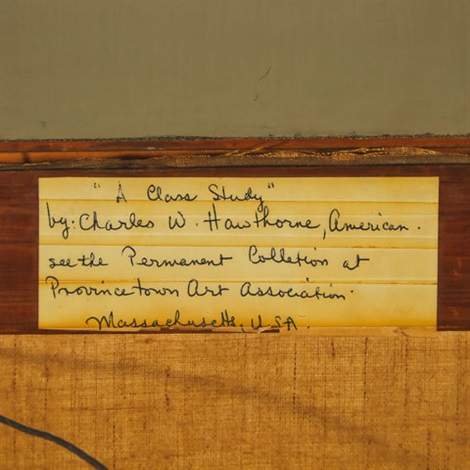 "A Class Study"
by: Charles W. Hawthorne, American.
see the Permanent Colletion at
Provincetown Art Association.
Massachusetts, USA.